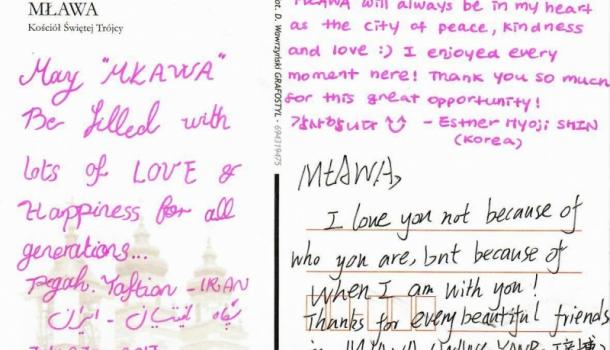 MŁAWA
Kościół Świętej Trójcy
May "MKAWA"
Be filled with
lots of LOVE &
Happiness for all
generations...
Pegah. Taftian - IRAN
پگاه تفتیان - ایران
fot. D. Wawrzyński GRAFOSTYL - 694319475
MŁAWA will always be in my heart
as the city of peace, kindness
and love :) I enjoyed every
moment here! Thank you so much
for this great opportunity!
감사합니다 - Esther Hyoji SHIN
(Korea)
MŁAWA,
I love you not because of
who you are, but because of
when I am with you!
Thanks for every beautiful friends
in MŁAWA